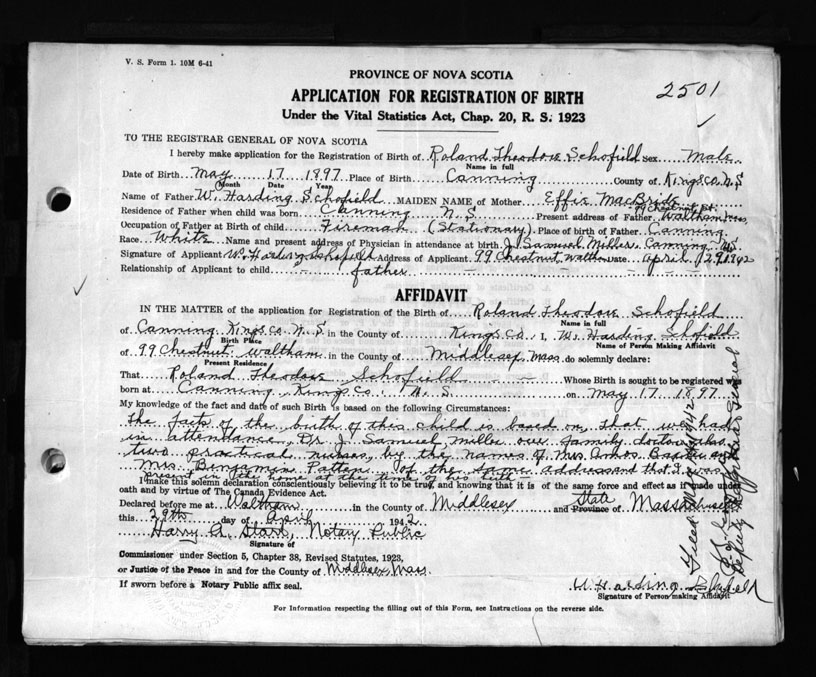 V. S. Form 1. 10M 6-41
PROVINCE OF NOVA SCOTIA
APPLICATION FOR REGISTRATION OF BIRTH
2501
Under the Vital Statistics Act, Chap. 20, R. S. 1923
TO THE REGISTRAR GENERAL OF NOVA SCOTIA
I hereby make application for the Registration of Birth of Roland Theodore Schofield Sex Male
Name in full
Date of Birth May 17 1897 Place of Birth Canning County of Kings Co. N.S
Month Date Year
Name of Father W. Harding Schofield MAIDEN NAME of Mother Effie MacBride
99 Chestnut St.
Residence of Father when child was born Canning N. S Present address of Father Waltham Mass
Occupation of Father at Birth of child Fireman (Stationary) Place of birth of Father Canning
Race White Name and present address of Physician in attendance at birth J. Samuel Miller, Canning N.S.
Signature of Applicant W. Harding Schofield Address of Applicant 99 Chestnut, Waltham Date April 29 1942
Relationship of Applicant to child father
AFFIDAVIT
IN THE MATTER of the application for Registration of the Birth of Roland Theodore Schofield
Name in full
of Canning Kings Co. N. S in the County of Kings Co I, W. Harding Schofield
Birth Place Name of Person Making Affidavit
of 99 Chestnut Waltham in the County of Middlesex, Mass do solemnly declare:
Present Residence
That Roland Theodore Schofield Whose Birth is sought to be registered was
born at Canning Kings Co. N. S. on May 17 1897
My knowledge of the fact and date of such Birth is based on the following Circumstances:
The facts of the birth of this child is based on, that we had
in attendance, Dr. J. Samuel Miller our family doctor, also
two practical nurses, by the names of Mrs. Amos and
Mrs. Benjamin Patten of the same address and that I was
present in the home at the time of his birth
I make this solemn declaration conscientiously believing it to be true, and knowing that it is of the same force and effect as if made under
oath and by virtue of The Canada Evidence Act.
Declared before me at Waltham in the County of Middlesex and State Province of Massachusetts
this 29th day of April 1942
Harry A. Notary Public
Signature of
Commissioner under Section 5, Chapter 38, Revised Statutes, 1923,
or Justice of the Peace in and for the County of Middlesex, Mass.
If sworn before a Notary Public affix seal.
W Harding Schofield
Signature of Person making Affidavit
For Information respecting the filling out of this Form, see Instructions on the reverse side.
Filed 1942
Deputy Registrar General